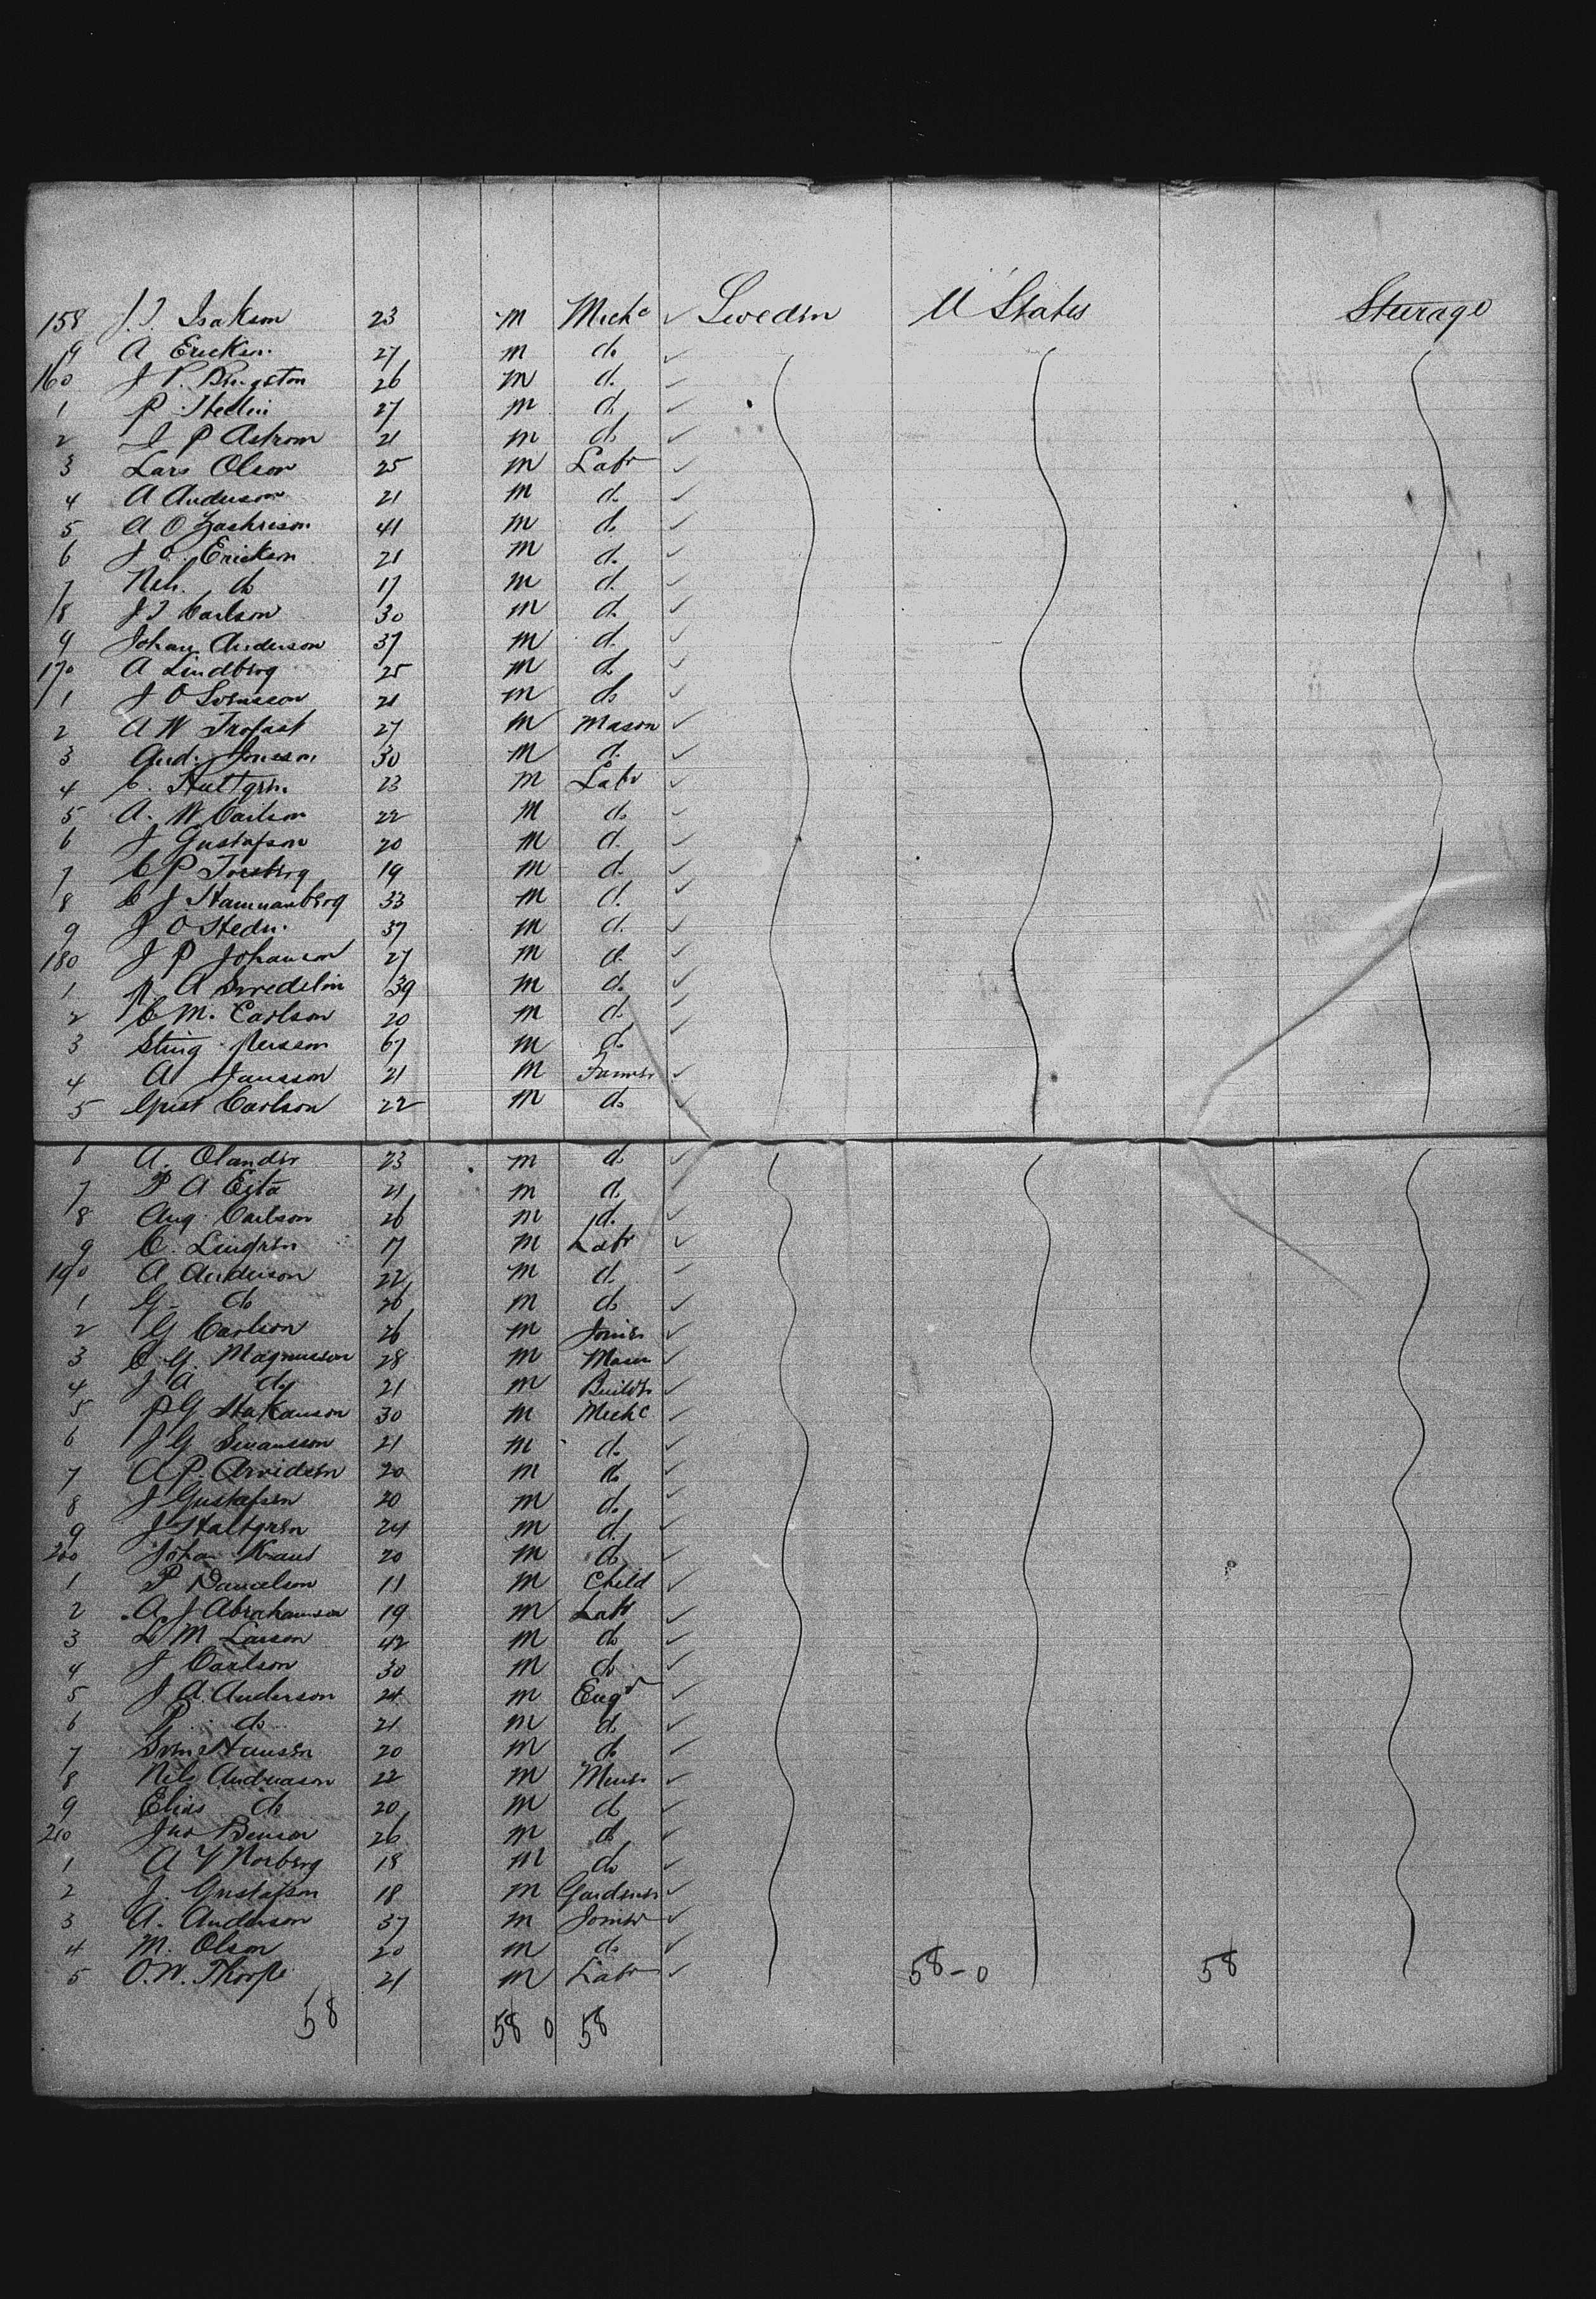 158 J. J. Isakson 23 m Mechc ✓ Sweden U States Steerage
9 A Erickson 27 m do ✓
160 J P. Bengston 26 m do ✓
1 P. Hedlin 27 m do ✓
2 J P Astrom 21 m do ✓
3 Lars Olson 25 m Labr ✓
4 A Anderson 21 m do ✓
5 A O Zachrison 41 m do ✓
6 J O. Erickson 21 m do ✓
7 do 17 m do ✓
8 J J Carlson 30 m do ✓
9 Johan Anderson 37 m do ✓
170 A Lindberg 25 m do ✓
1 J O Svensson 21 m do ✓
2 A W Trofast 27 m Mason ✓
3 And. Jonsson 30 m do ✓
4 C. Hultgren 23 m Labr ✓
5 A. W Carlson 22 m do ✓
6 J Gustafson 20 m do ✓
7 C P Forsberg 19 m do ✓
8 C J Hammarberg 33 m do ✓
9 J O Heden 37 m do ✓
180 J P Johanson 27 m do ✓
1 P. A Swedelin 39 m do ✓
2 C M. Carlson 20 m do ✓
3 Persson 67 m do ✓
4 A Jansson 21 m Farmer ✓
5 Gust Carlson 22 m do ✓
6 A. Olander 23 m do ✓
7 P A 21 m do ✓
8 Aug. Carlson 26 m do ✓
9 C. Lingren 17 m Labr ✓
190 A Anderson 22 m do ✓
1 G. do 26 m do ✓
2 G Carlson 26 m Joiner ✓
3 C. G. Magnusson 28 m Mason ✓
4 J A do 21 m Builder ✓
5 P G Hakanson 30 m Mechc ✓
6 J G Swansson 21 m do ✓
7 A P. Arvidsen 20 m do ✓
8 J Gustafsen 20 m do ✓
9 J Haltgren 24 m do ✓
200 Johan 20 m do ✓
1 P Danielson 11 m Child ✓
2 A. J Abrahamson 19 m Labr ✓
3 L M Larson 42 m do ✓
4 J Carlson 30 m do ✓
5 J A. Anderson 24 m Engr ✓
6 P. do 21 m do ✓
7 Sven Hansen 20 m do ✓
8 Nils Andreason 22 m Miner ✓
9 Elias do 20 m do ✓
210 Jno Benson 26 m do ✓
1 A Y Norberg 18 m do ✓
2 J. Gustafson 18 m Gardener ✓
3 A. Anderson 37 m Joiner ✓
4 M. Olson 20 m do ✓
5 O. W. Thorpe 21 m Labr ✓ 58-0 58
58 58 0 58